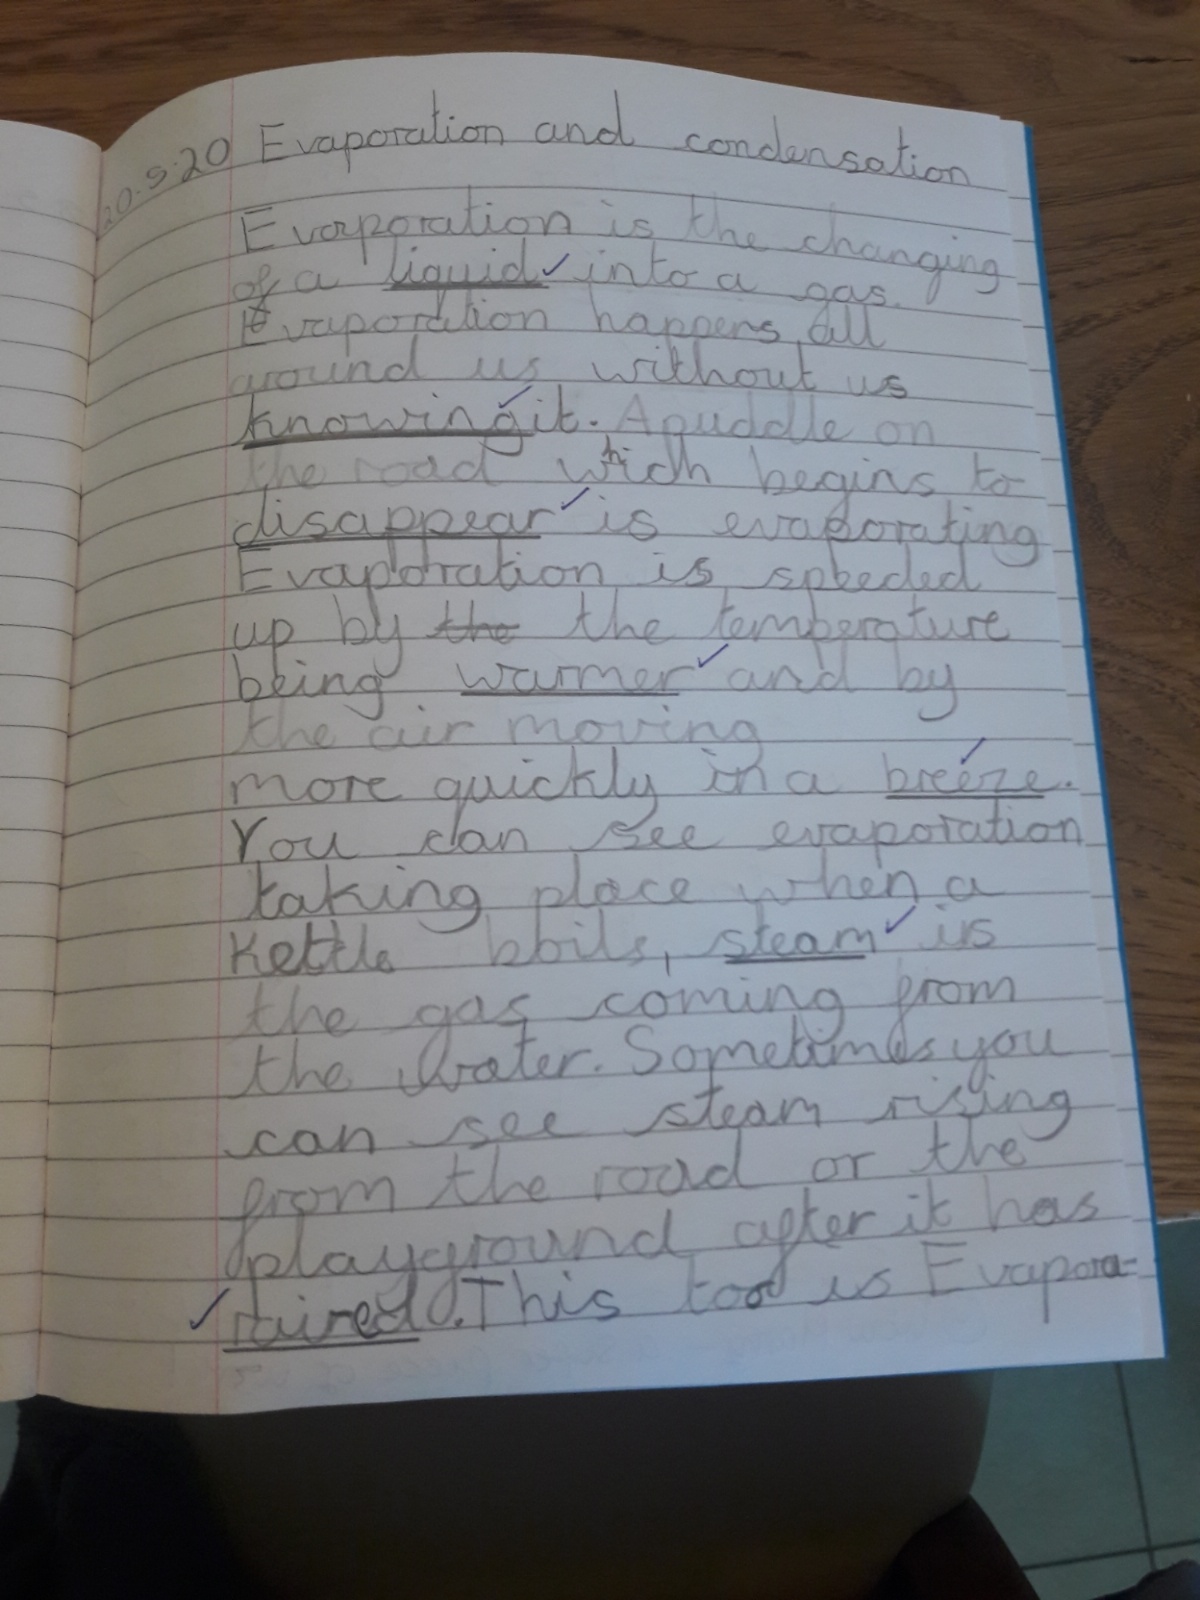 20.5.20 Evaporation and condensation
Evaporation is the changing
of a liquid into a gas.
Evaporation happens all
around us without us
knowing it. A puddle on
the road which begins to
disappear is evaporating
Evaporation is speeded
up by the the temperature
being warmer and by
the air moving
more quickly in a breeze.
You can see evaporation
taking place when a
Kettle boils, steam is
the gas coming from
the water. Sometimes you
can see steam rising
from the road or the
playground after it has
rained. This too is Evapora-